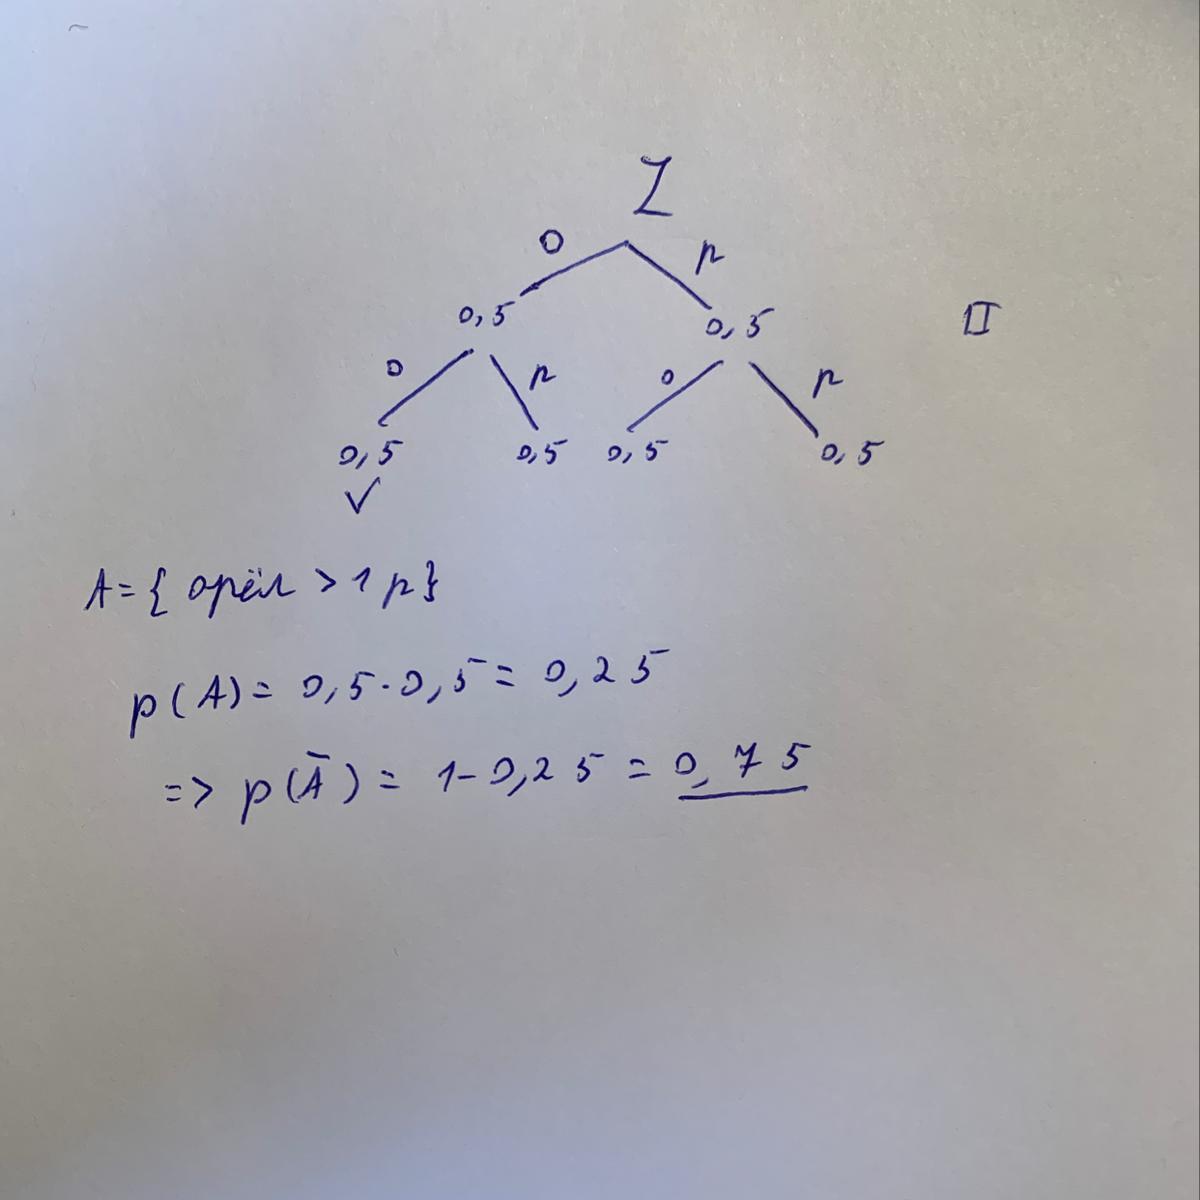 Z
о р
0,5 0,5 II
о р о р
0,5 0,5 0,5 0,5
✓
A = { орёл > 1 р }
p(A) = 0,5 · 0,5 = 0,25
=> p(Ā) = 1 - 0,25 = 0,75